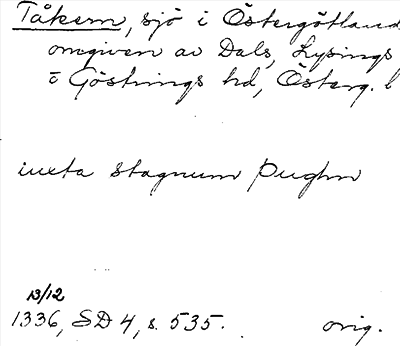 Tåkern, sjö i Östergötland
omgiven av Dals, Lysings
o Göstrings hd, Österg. l
iuxta stagnum
13/12
1336, SD 4, s. 535. orig.